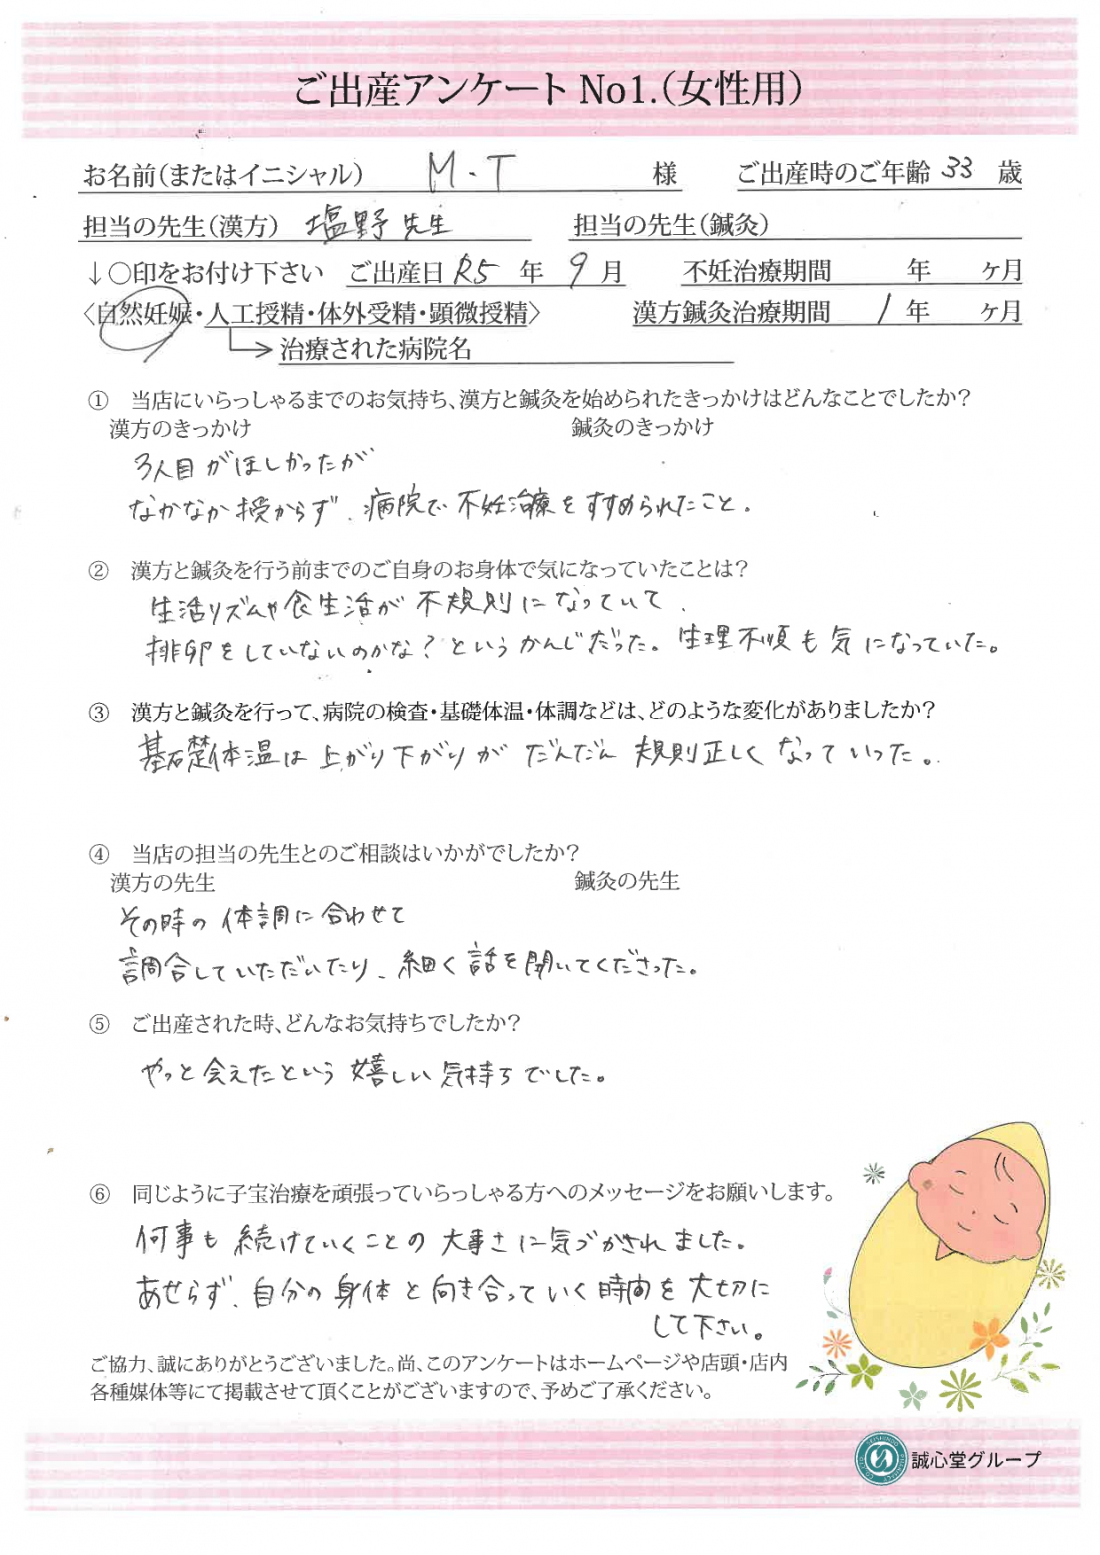 ご出産アンケート No1.(女性用)
お名前(またはイニシャル) M.T 様 ご出産時のご年齢 33 歳
担当の先生(漢方) 塩野先生 担当の先生(鍼灸)
↓○印をお付け下さい ご出産日 R5 年 9 月 不妊治療期間 年 ヶ月
〈自然妊娠・人工授精・体外受精・顕微授精〉 漢方鍼灸治療期間 1 年 ヶ月
治療された病院名
① 当店にいらっしゃるまでのお気持ち、漢方と鍼灸を始められたきっかけはどんなことでしたか?
漢方のきっかけ 鍼灸のきっかけ
3人目がほしかったが
なかなか授からず、病院で不妊治療をすすめられたこと。
② 漢方と鍼灸を行う前までのご自身のお身体で気になっていたことは?
生活リズムや食生活が不規則になっていて、
排卵をしていないのかな?というかんじだった。生理不順も気になっていた。
③ 漢方と鍼灸を行って、病院の検査・基礎体温・体調などは、どのような変化がありましたか?
基礎体温は上がり下がりがだんだん規則正しくなっていった。
④ 当店の担当の先生とのご相談はいかがでしたか?
漢方の先生 鍼灸の先生
その時の体調に合わせて
調合していただいたり、細く話を聞いてくださった。
⑤ ご出産された時、どんなお気持ちでしたか?
やっと会えたという嬉しい気持ちでした。
⑥ 同じように子宝治療を頑張っていらっしゃる方へのメッセージをお願いします。
何事も続けていくことの大事さに気づかされました。
あせらず、自分の身体と向き合っていく時間を大切に
して下さい。
ご協力、誠にありがとうございました。尚、このアンケートはホームページや店頭・店内
各種媒体等にて掲載させて頂くことがございますので、予めご了承ください。
誠心堂グループ